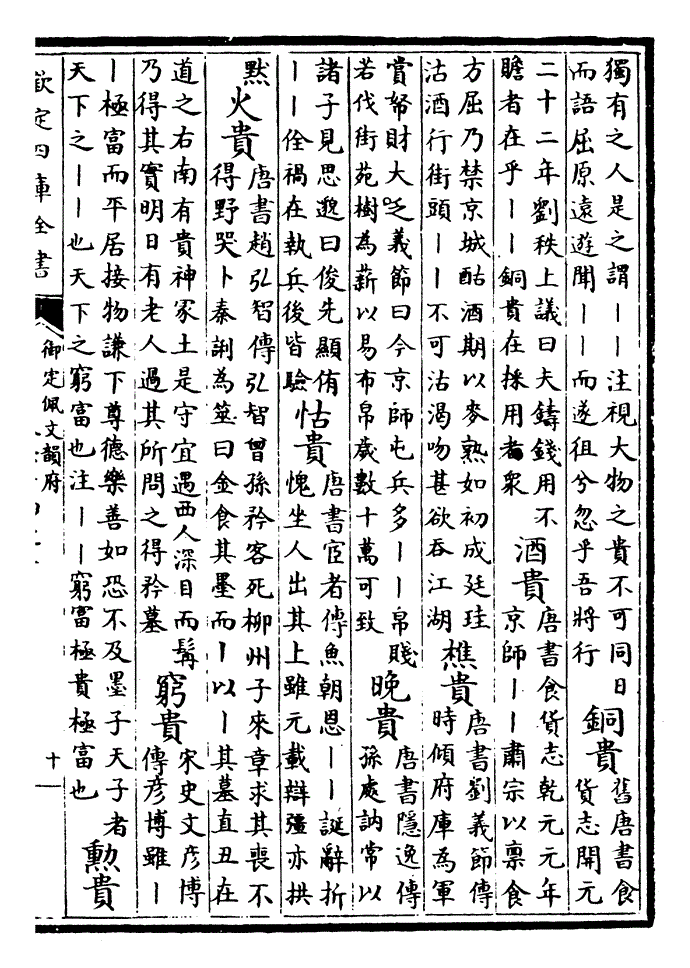 獨有之人是之謂——注視大物之貴不可同日
而語屈原遠遊聞——而遂徂兮忽乎吾將行
銅貴
舊唐書食
貨志開元
二十二年劉秩上議曰夫鑄錢用不
贍者在乎——銅貴在採用者衆
酒貴
唐書食貨志乾元元年
京師——肅宗以稟食
方屈乃禁京城酤酒期以麥熟如初成廷珪
沽酒行街頭——不可沽渴吻甚欲吞江湖
樵貴
唐書劉義節傳
時傾府庫為軍
賞帑財大乏義節曰今京師屯兵多——帛賤
若伐街苑樹為薪以易布帛歲數十萬可致
晚貴
唐書隱逸傳
孫處訥常以
諸子見思邈曰俊先顯侑
——佺禍在執兵後皆驗
怙貴
唐書宦者傳魚朝恩——誕辭折
愧坐人出其上雖元載辯彊亦拱
黙
火貴
唐書趙弘智傳弘智曾孫矜客死柳州子來章求其喪不
得野哭卜秦誗為筮曰金食其墨而—以—其墓直丑在
道之右南有貴神冢土是守宜遇西人深目而髯
乃得其實明日有老人過其所問之得矜墓
窮貴
宋史文彦博
傳彦博雖—
—極富而平居接物謙下尊德樂善如恐不及墨子天子者
天下之——也天下之窮富也注——窮富極貴極富也
勲貴
欽定四庫全書
御定佩文韻府
十